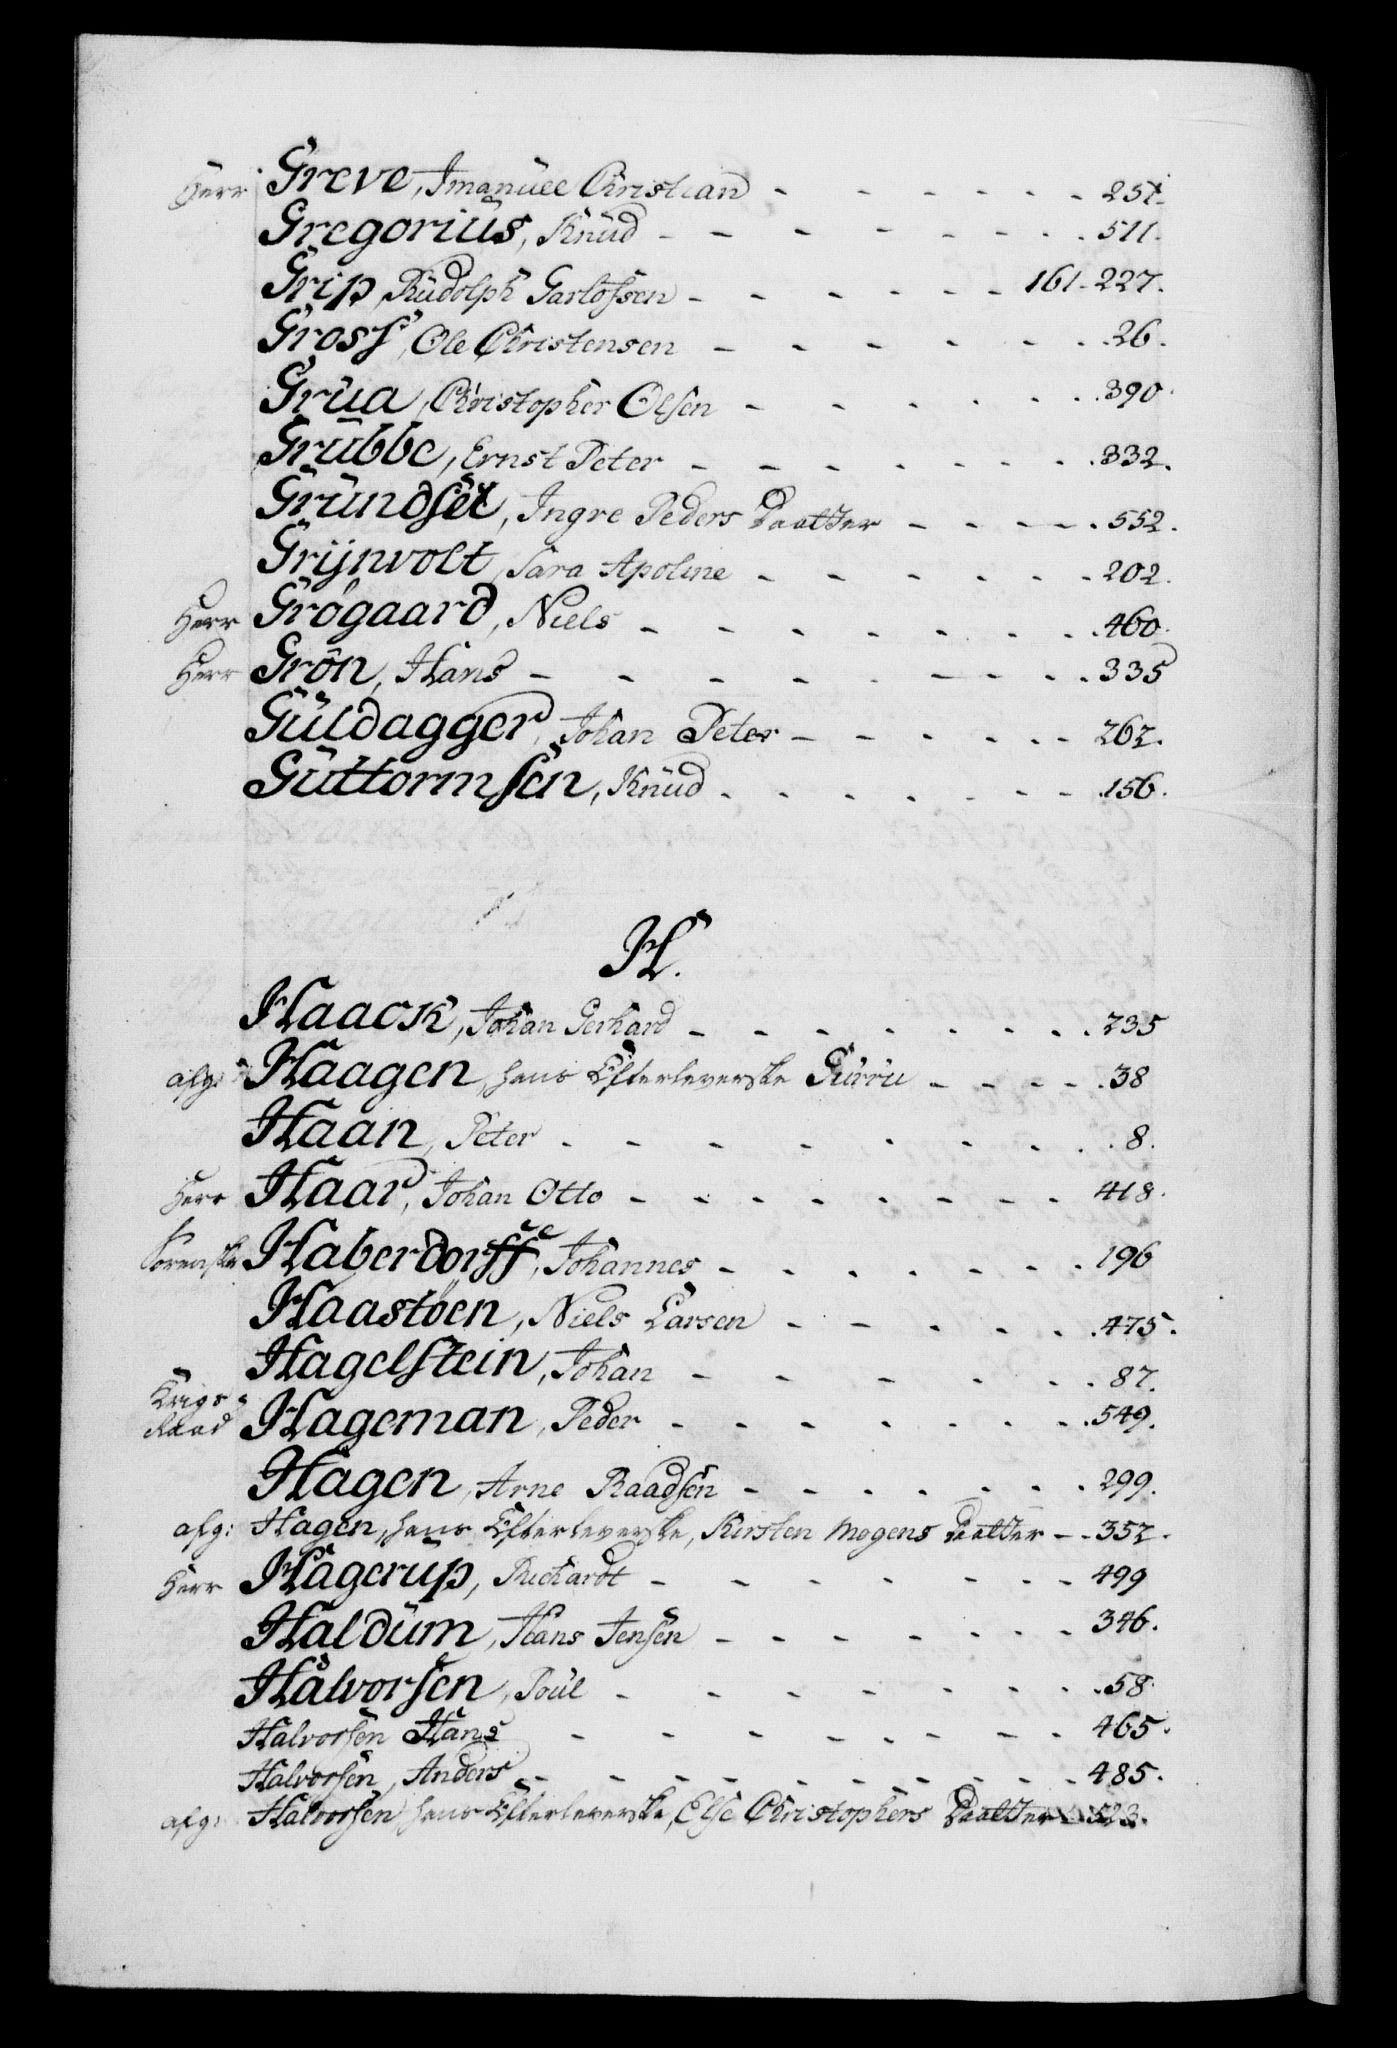 Herr Greve, Imanuel Christian - - - - - - 251.
Gregorius, Knud - - - - - - - 511.
Grip, Rudolph Garlofsen - - - - - - 161. 227.
Gross, Ole Christensen - - - - - - 26.
Grua, Christopher Olsen - - - - - - 390.
Grubbe, Ernst Peter - - - - - - - 332.
Grundset, Ingre Peders Daatter - - - - 552.
Grijnvolt, Sara Apoline - - - - - - 202.
Herr Grøgaard, Niels - - - - - - - 460.
Herr Grøn, Hans - - - - - - - - 335
Guldagger, Johan Peter - - - - - - 262.
Guttormsen, Knud - - - - - - - 156.
H.
Haack, Johan Gerhard - - - - - - - 235
afg: Haagen, hans Efterleverske Gurru - - - - 38
Haan, Peter - - - - - - - - 8.
Herr Haar, Johan Otto - - - - - - - 418.
Haberdorff, Johannes - - - - - - 196
Haastøen, Niels Larsen - - - - - 475.
Hagelstein, Johan - - - - - - - 87.
Krigs-
Raad Hageman, Peder - - - - - - - 549.
Hagen, Arne Raadsen - - - - - - 299.
afg: Hagen, hans Efterleverske, Kirsten Mogens Daatter - 352.
Herr Hagerup, Richardt - - - - - - - 499
Haldum, Hans Jensen - - - - - - 346.
Halvorsen, Poul - - - - - - - 58.
Halvorsen Hans - - - - - - - 465.
Halvorsen, Anders - - - - - - - - 485.
afg: Halvorsen hans Efterleverske, Else Christophers Daatter - 523.